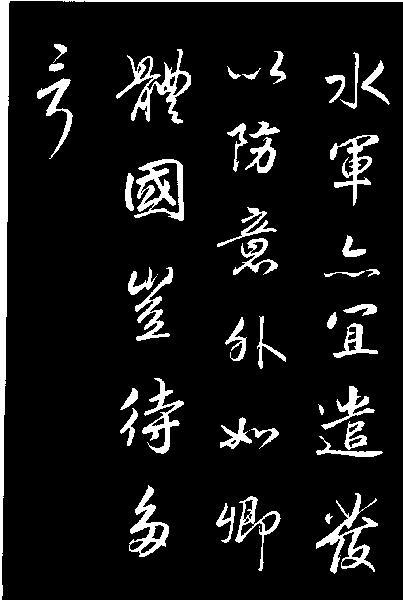 水軍亦宜遣發
以防意外如卿
體國豈待多
言